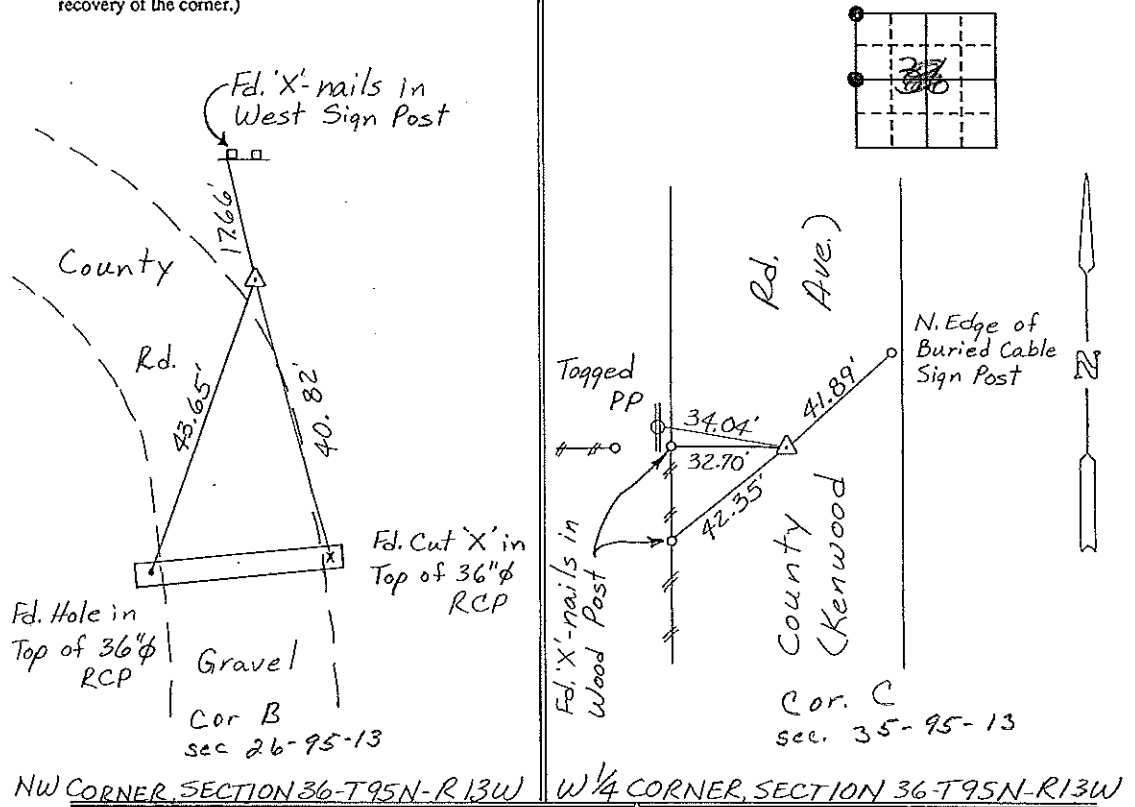 recovery of the corner.)
Fd. 'X'-nails in
West Sign Post
17.66'
County
Rd.
43.65'
40.82'
Fd. Cut 'X' in
Top of 36"ϕ
RCP
x
Fd. Hole in
Top of 36"ϕ
RCP
Gravel
Cor B
sec 26-95-13
NW CORNER, SECTION 36-T95N-R13W
36
Rd.
Ave.)
N. Edge of
Buried Cable
Sign Post
N
Tagged
PP
34.04'
41.89'
32.70'
42.35'
Fd. 'X'-nails in
Wood Post
County
(Kenwood
Cor. C
sec. 35-95-13
W 1/4 CORNER, SECTION 36-T95N-R13W